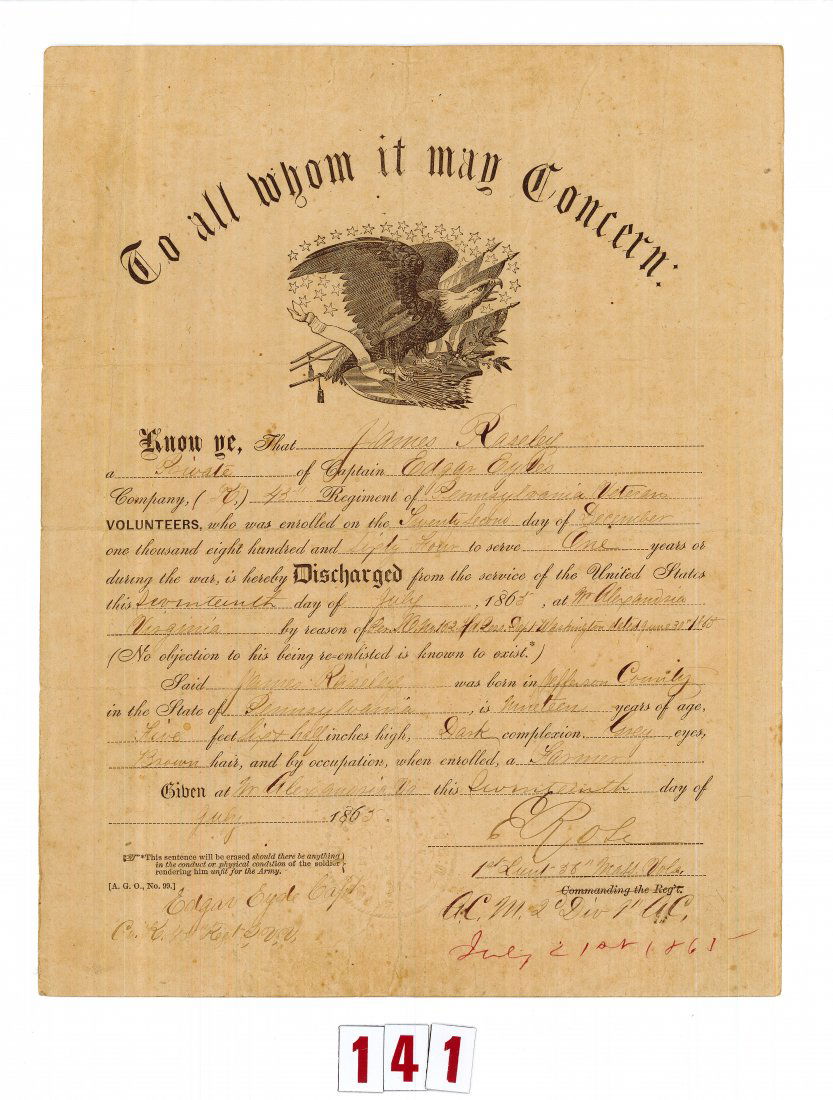 To all whom it may Concern:
Know ye, That James Raseley
a Private of Captain Edgar Eyds
Company, (K.) 45" Regiment of Pennsylvania Veteran
VOLUNTEERS, who was enrolled on the Twenty Second day of December
one thousand eight hundred and Sixty Four to serve One years or
during the war, is hereby Discharged from the service of the United States
this Seventeenth day of July, 1865, at Nr Alexandria
Virginia by reason of Dept Washington dated June 30" 1865
(No objection to his being re-enlisted is known to exist.*)
Said James Raseley was born in Jefferson County
in the State of Pennsylvania, is Nineteen years of age,
Five feet Six & half inches high, Dark complexion, Grey eyes,
Brown hair, and by occupation, when enrolled, a Farmer
Given at Nr Alexandria Va this Seventeenth day of
July 1865.
E Rose
*This sentence will be erased should there be anything
in the conduct or physical condition of the soldier
rendering him unfit for the Army.
[A. G. O., No. 99.]
1st Lieut 36" Mass Vols.
Commanding the Reg't.
A.C.M. 2d Div 9" A.C.
Edgar Eyde Capt
Co. K. 45 Regt P.V.V.
July 21st 1865
141